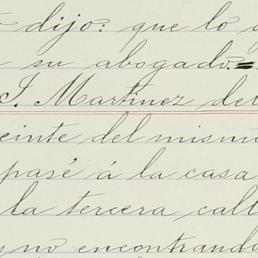 dijo: que lo
su abogado.
J. Martinez del
einte del mismo
pasé á la casa
la tercera call
y no encontrando